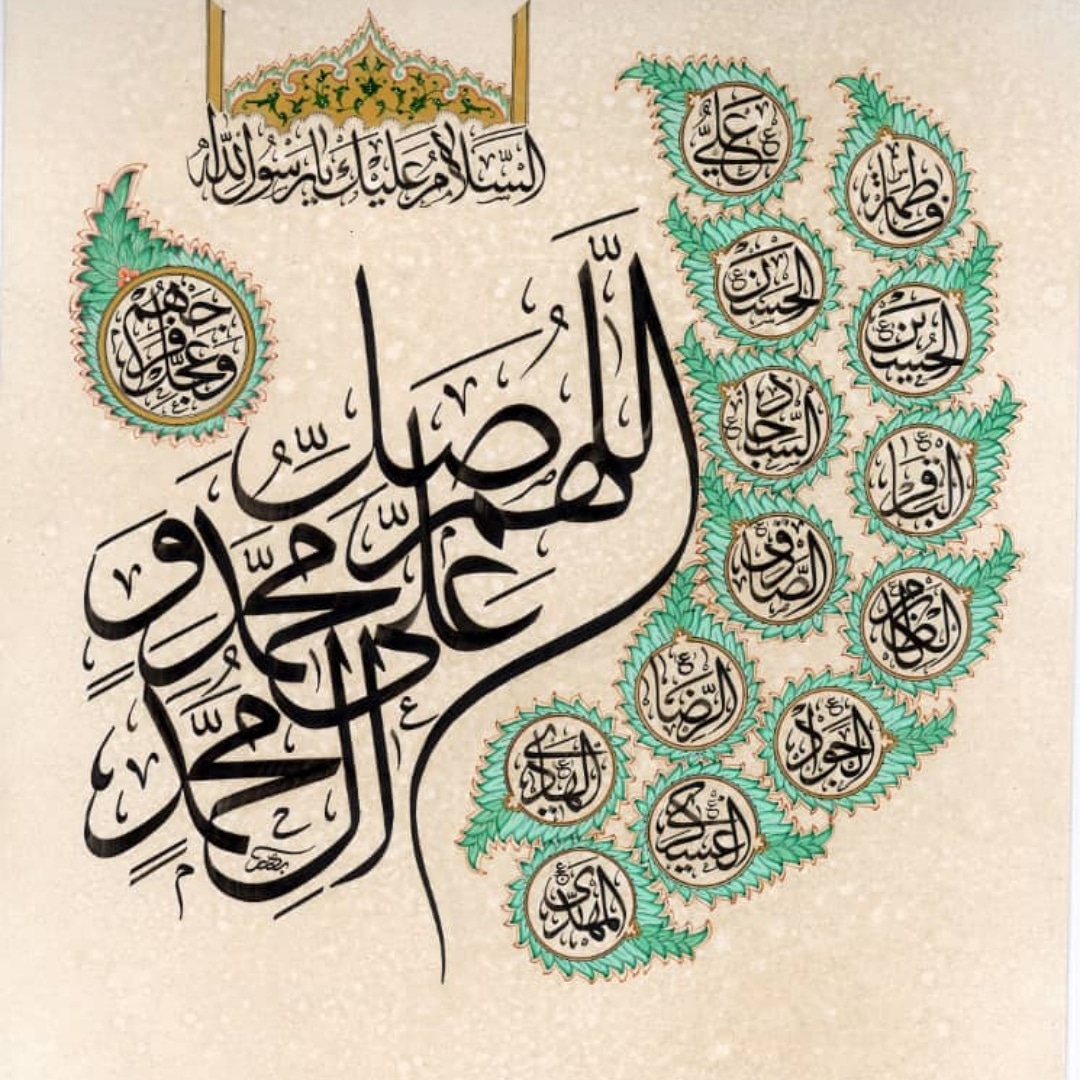 السَّلامُ عَلَيْكَ يا رَسُولَ اللهِ
اللّٰهُمَّ صَلِّ
عَلىٰ مُحَمَّدٍ وَ
آلِ مُحَمَّدٍ
وَعَجِّل فَرَجَهُم
عَليّ ع
فاطمة س
الحَسَن ع
الحُسين ع
السَّجاد ع
الباقر ع
الصّادق ع
الكاظم ع
الرِّضا ع
الجَواد ع
الهادي ع
العَسكري ع
المَهدي عج